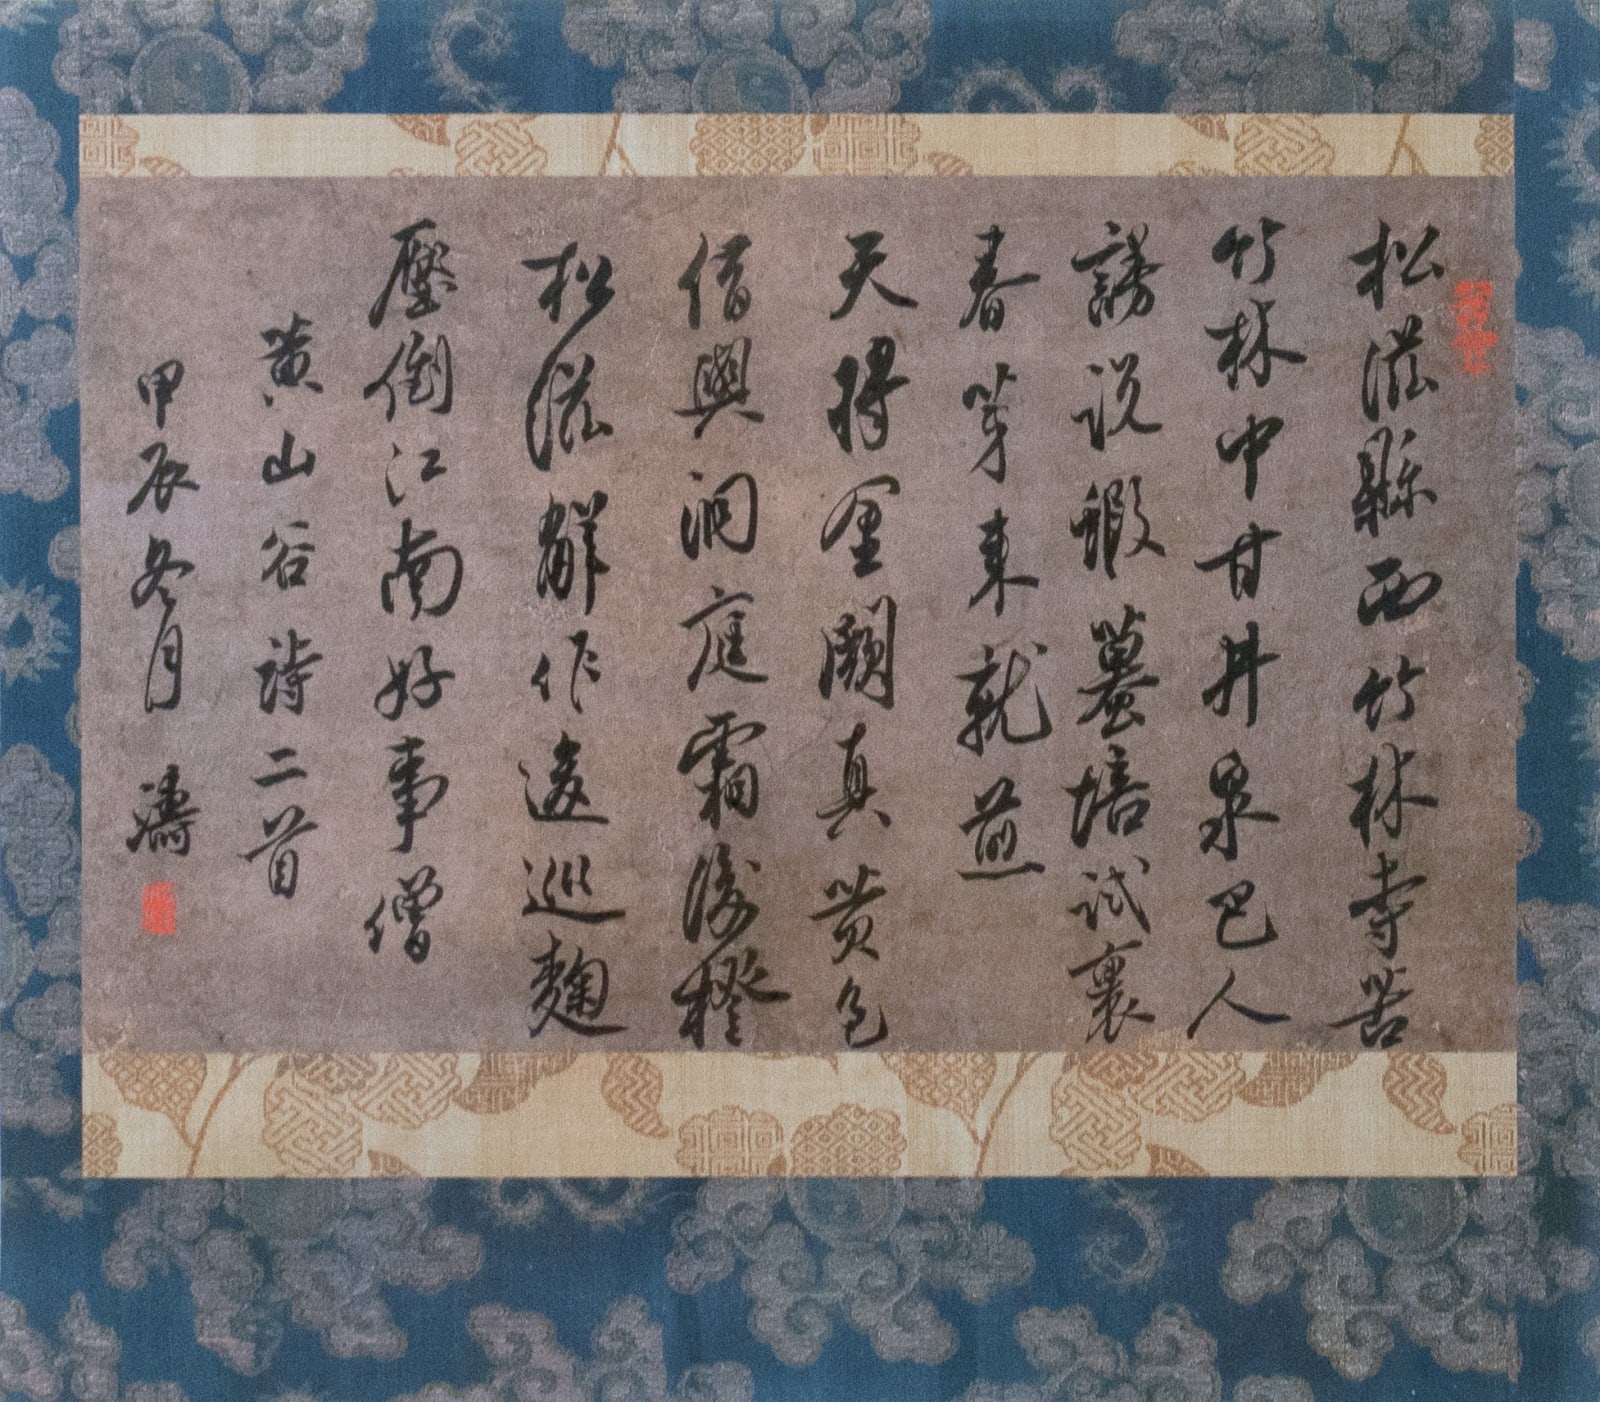 松滋縣西竹林寺苦
竹林中甘井泉巴人
謾説蝦蟇培試裹
春芽来就煎
天将金闕真黄色
借與洞庭霜後橙
松滋解作逡巡麹
壓倒江南好事僧
黄山谷詩二首
甲辰冬月 濤